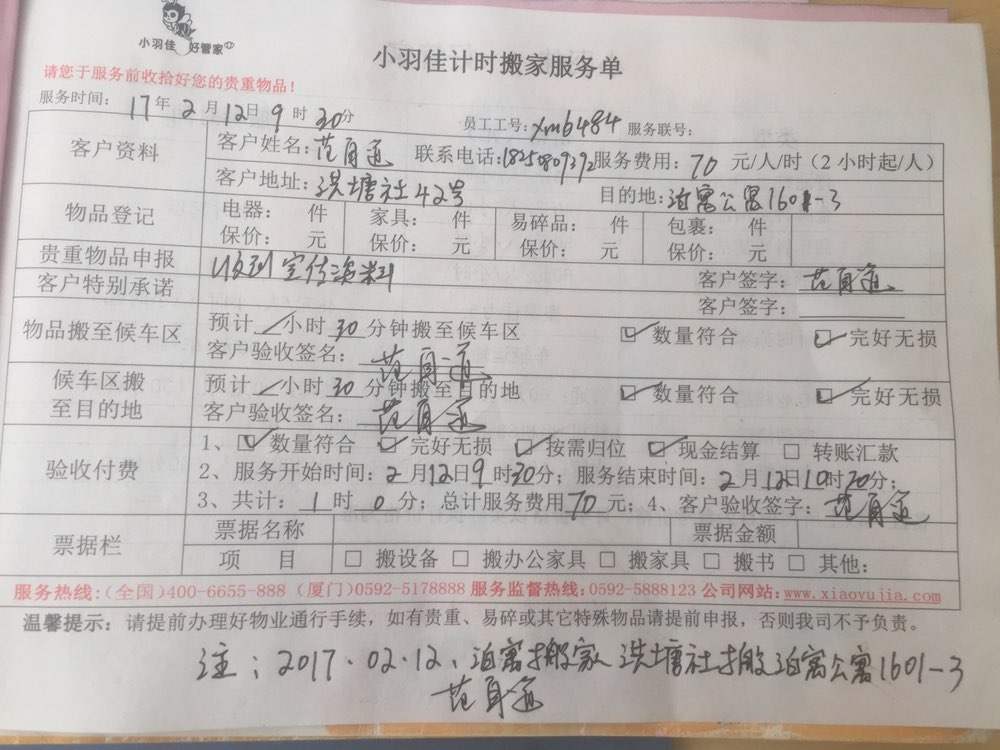 小羽佳 好管家
小羽佳计时搬家服务单
请您于服务前收拾好您的贵重物品!
服务时间: 17年2月12日9时30分
员工工号: xm6484 服务联号:
客户资料
客户姓名: 范自通 联系电话: 服务费用: 70 元/人/时（2小时起/人）
客户地址: 洪塘社42号 目的地: 泊寓公寓1601-3
物品登记
电器: 件 家具: 件 易碎品: 件 包裹: 件
保价: 元 保价: 元 保价: 元 保价: 元
贵重物品申报 收到宣传资料 客户签字: 范自通
客户特别承诺 客户签字:
物品搬至候车区
预计/小时30分钟搬至候车区 数量符合 完好无损
客户验收签名: 范自通
候车区搬至目的地
预计/小时30分钟搬至目的地 数量符合 完好无损
客户验收签名: 范自通
验收付费
1、数量符合 完好无损 按需归位 现金结算 转账汇款
2、服务开始时间: 2月12日9时30分; 服务结束时间: 2月12日10时30分;
3、共计: 1时0分; 总计服务费用70元; 4、客户验收签字: 范自通
票据栏
票据名称 票据金额
项目 搬设备 搬办公家具 搬家具 搬书 其他:
服务热线:(全国)400-6655-888 (厦门)0592-5178888 服务监督热线:0592-5888123 公司网站:www.xiaoyujia.com
温馨提示: 请提前办理好物业通行手续, 如有贵重、易碎或其它特殊物品请提前申报, 否则我司不予负责。
注: 2017.02.12、泊寓搬家 洪塘社搬泊寓公寓1601-3
范自通